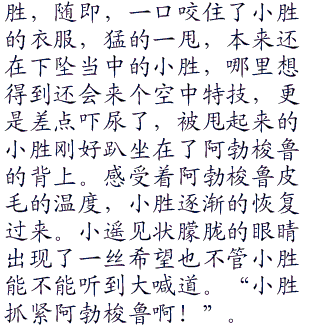 胜，随即，一口咬住了小胜
的衣服，猛的一甩，本来还
在下坠当中的小胜，哪里想
得到还会来个空中特技，更
是差点吓尿了，被甩起来的
小胜刚好趴坐在了阿勃梭鲁
的背上。感受着阿勃梭鲁皮
毛的温度，小胜逐渐的恢复
过来。小遥见状朦胧的眼睛
出现了一丝希望也不管小胜
能不能听到大喊道。“小胜
抓紧阿勃梭鲁啊！”。